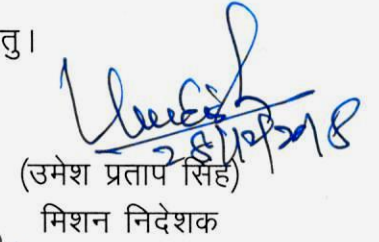 तु।
28/12/2018
(उमेश प्रताप सिंह)
मिशन निदेशक